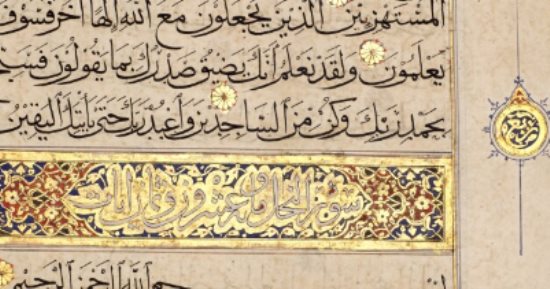 المستهزئين الذين يجعلون مع الله إلها آخر فسوف
يعلمون ولقد نعلم أنك يضيق صدرك بما يقولون
بحمد ربك وكن من الساجدين واعبد ربك حتى يأتيك اليقين
سورة النحل مائة وعشرون وثمان آيات
الله الرحمن الرحيم